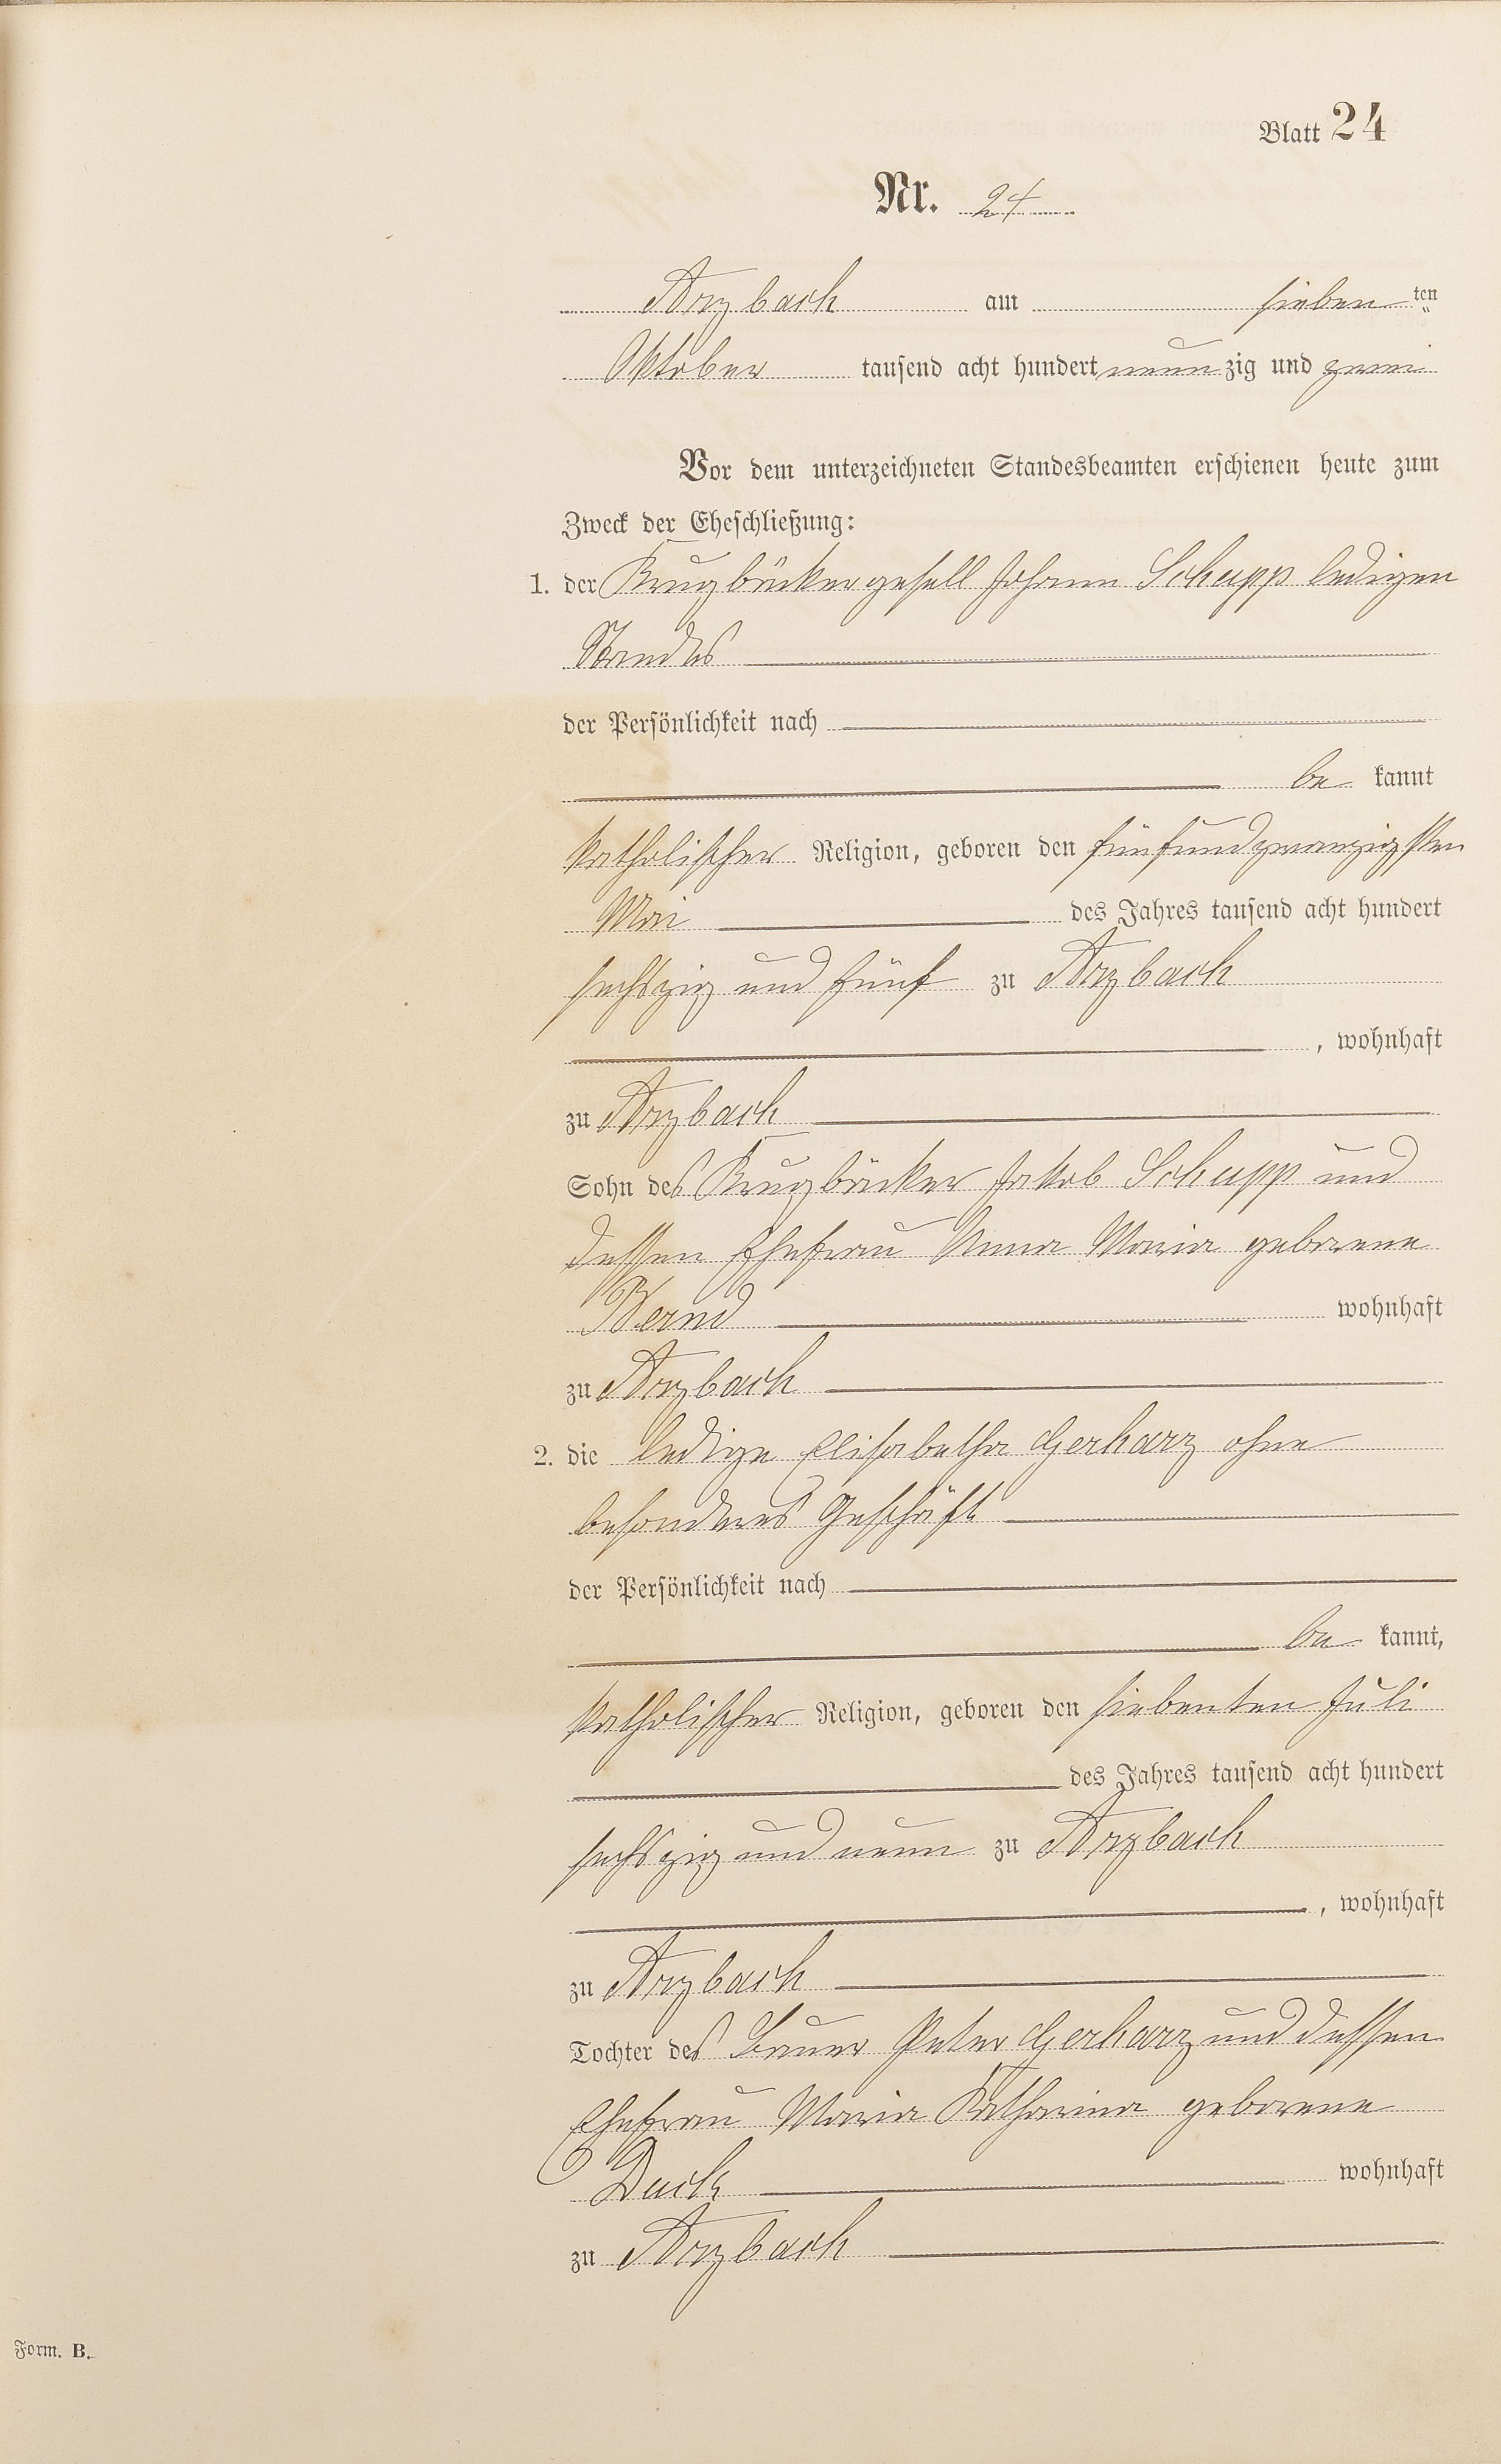 Blatt 24
Nr. 24
Arzbach am sieben ten
Oktober tausend acht hundert neun zig und zwei
Vor dem unterzeichneten Standesbeamten erschienen heute zum
Zweck der Eheschließung:
1. der Krugbäckergesell Johann Schupp ledigen
Standes
der Persönlichkeit nach
be kannt
katholischer Religion, geboren den fünfundzwanzigsten
Mai des Jahres tausend acht hundert
sechszig und fünf zu Arzbach
, wohnhaft
zu Arzbach
Sohn des Krugbäcker Jakob Schupp und
dessen Ehefrau Anna Maria geborene
Bernd wohnhaft
zu Arzbach
2. die ledige Elisabetha Gerharz ohne
besonderes Geschäft
der Persönlichkeit nach
be kannt,
katholischer Religion, geboren den siebenten Juli
des Jahres tausend acht hundert
sechszig und neun zu Arzbach
, wohnhaft
zu Arzbach
Tochter des Bauer Peter Gerharz und dessen
Ehefrau Maria Katharina geborene
wohnhaft
zu Arzbach
Form. B.